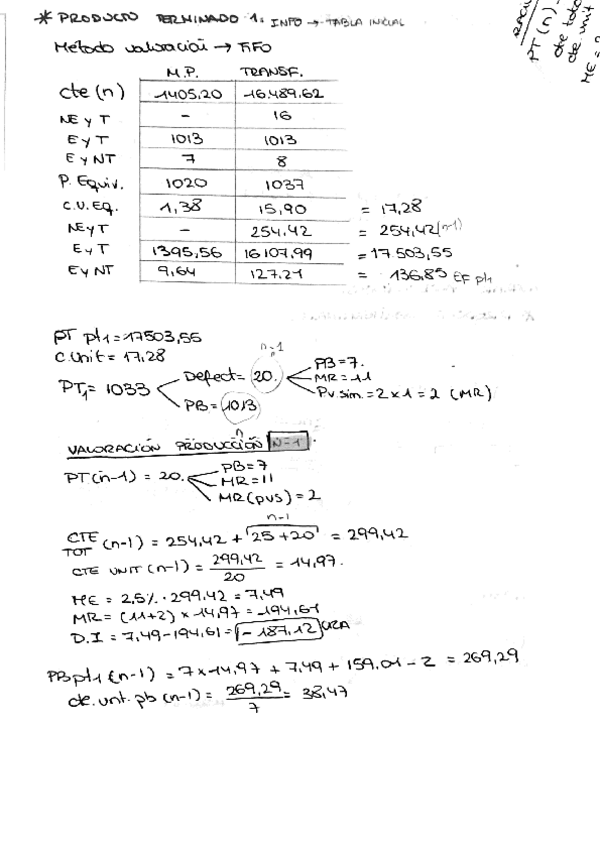 * PRODUCTO TERMINADO 1. INFO → TABLA INICIAL
Método valoración → FIFO
M.P. TRANSF.
cte (n) 1405,20 16.489,62
NE y T - 16
E y T 1013 1013
E y NT 7 8
P. Equiv. 1020 1037
C.U. Eq. 1,38 15,90 = 17,28
NE y T - 254,42 = 254,42 (n-1)
E y T 1395,56 16107,99 = 17.503,55
E y NT 9,64 127,21 = 136,85 EF pt1
PT pt1 = 17503,55
C. Unit = 17,28
n-1
PT1 = 1033 Defect = 20. PB = 7.
MR = 11
Pv. sim. = 2 x 1 = 2 (MR)
PB = 1013
n
VALORACIÓN PRODUCCIÓN N=1.
PT (n-1) = 20. PB = 7
MR = 11
MR (pvs) = 2
n-1
CTE TOT (n-1) = 254,42 + 25 + 20 = 299,42
CTE UNIT (n-1) = 299,42 / 20 = 14,97.
ME = 2,5% · 299,42 = 7,49
MR = (11+2) x 14,97 = 194,61
D.I = 7,49 - 194,61 = - 187,12
PB pt1 (n-1) = 7 x 14,97 + 7,49 + 159,01 - 2 = 269,29
cte. unt. pb (n-1) = 269,29 / 7 = 38,47
PT (n)
cte tot
cte unit
ME =